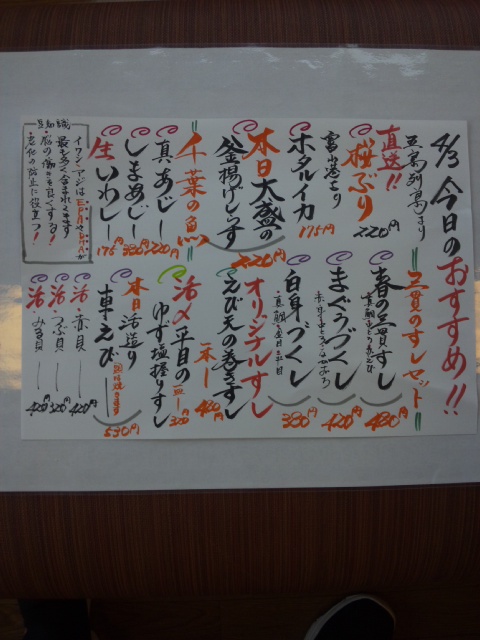 4/3 今日のおすすめ!!
五島列島より
直送!!
桜ぶり
220円
富山港より
ホタルイカ
175円
本日大盛の
釜揚げしらす
220円
千葉の魚
真あじ
220円
しまあじ
320円
生いわし
175円
豆知識
イワシ、アジは EPAやDHAが
最も多く含まれてます
・脳の働きを良くする!
・老化の防止に役立つ!
三貫のすしセット
春の三貫すし
480円
まぐろづくし
420円
白身づくし
380円
オリジナルすし
えび天の巻きすし
一本
420円
活〆平目の
ゆず塩握りすし
一皿
320円
本日活造り
車えび
530円
活・赤貝
420円
活・つぶ貝
320円
活・みる貝
420円